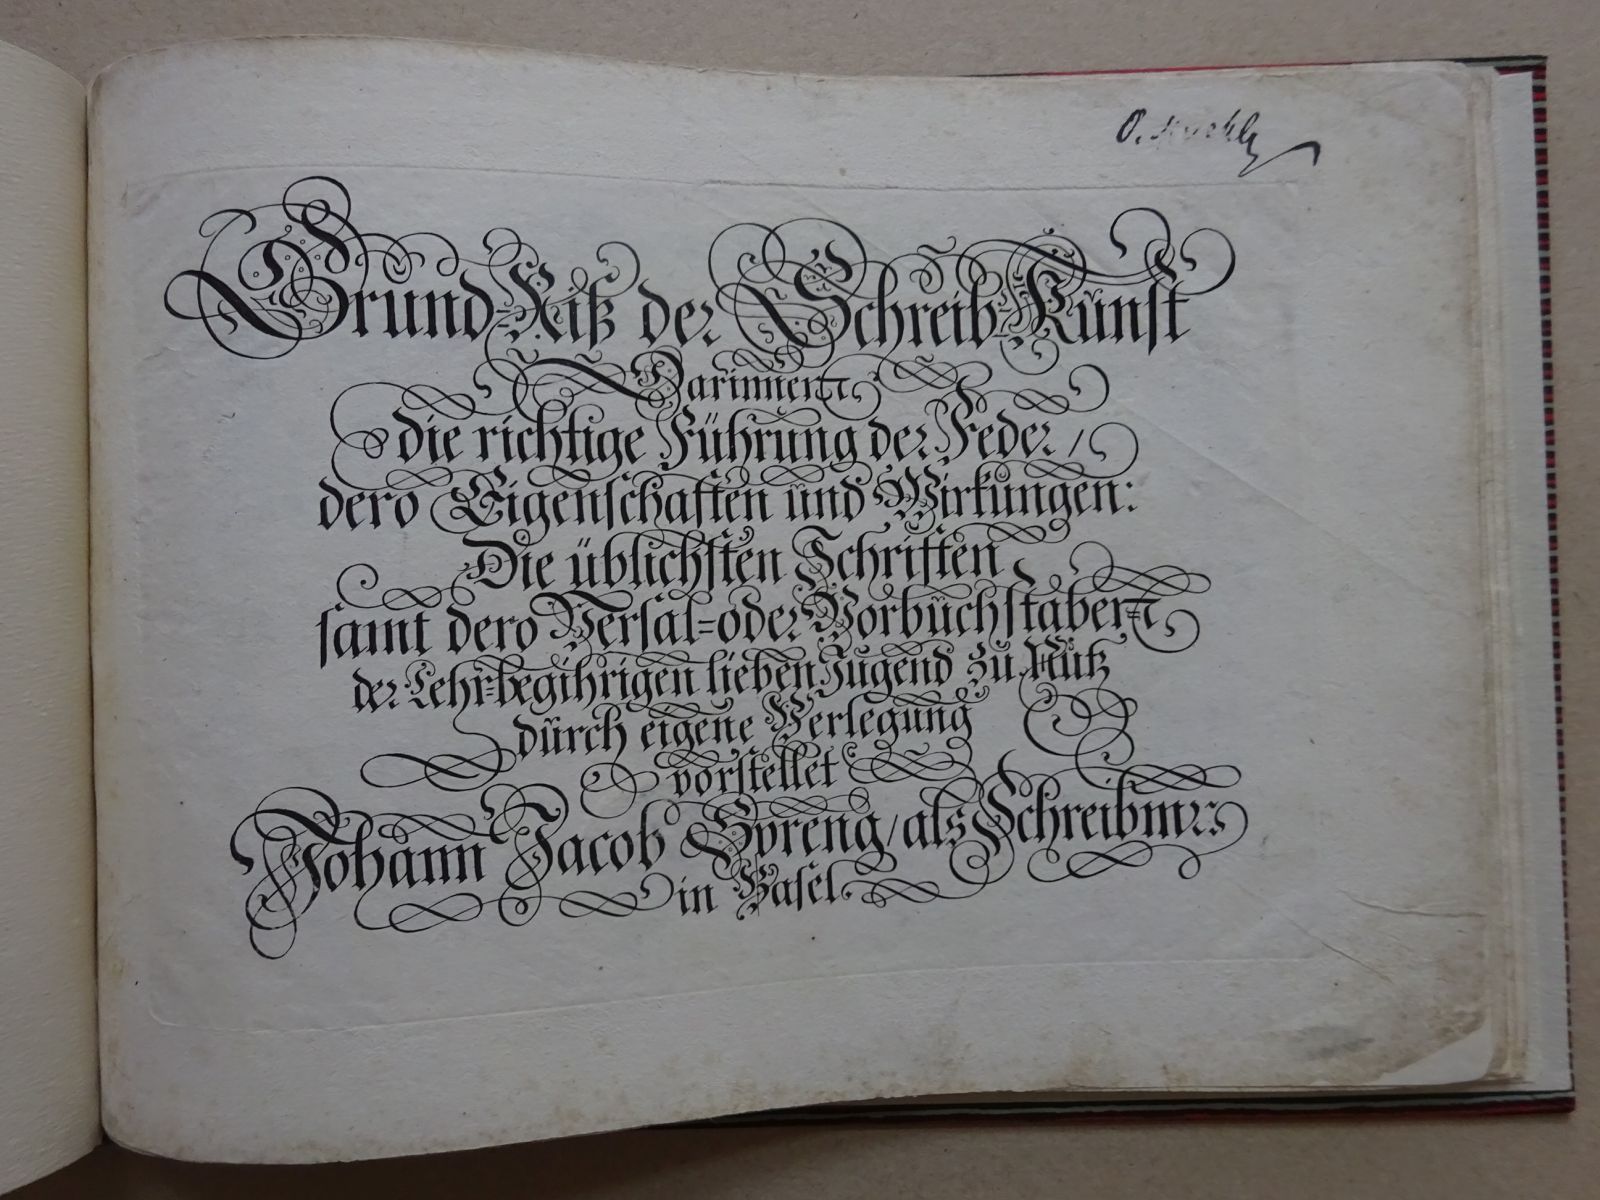 Grund-Riß der Schreib-Kunst
Darinnen
die richtige Führung der Feder/
dero Eigenschafften und Wirkungen:
Die üblichsten Schrifften
samt dero Versal-oder Vorbuchstaben
der Lehr-begihrigen lieben Jugend zu Nutz
durch eigene Verlegung
vorstellet
Johann Jacob Spreng/als Schreibmr
in Basel.